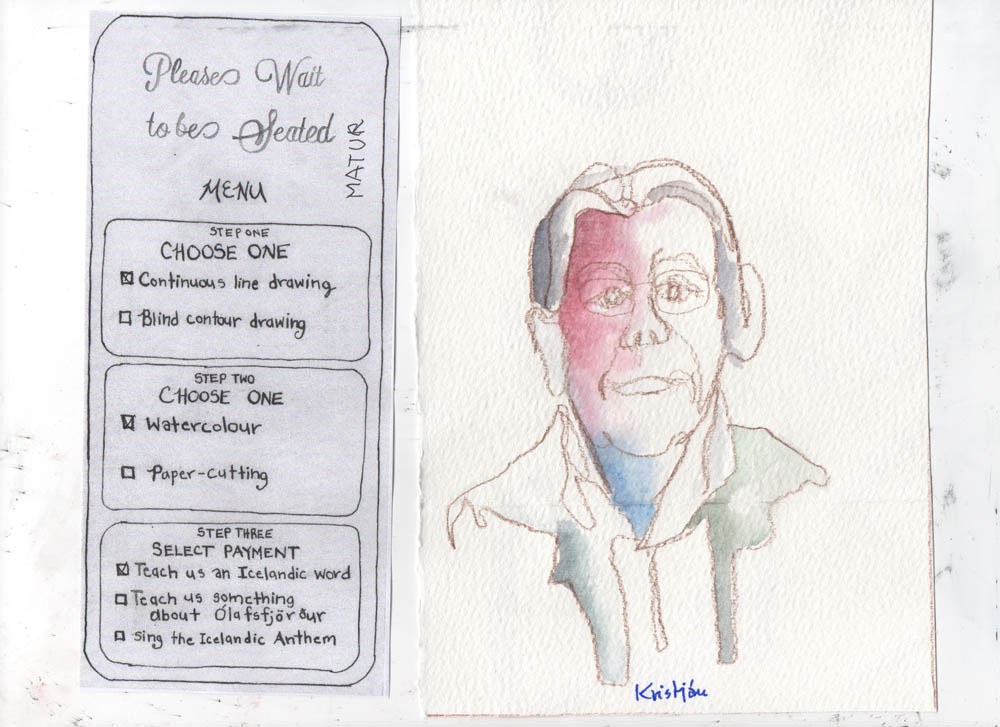 Please Wait
to be Seated
MATUR
MENU
STEP ONE
CHOOSE ONE
☒ Continuous line drawing
☐ Blind contour drawing
STEP TWO
CHOOSE ONE
☒ Watercolour
☐ Paper-cutting
STEP THREE
SELECT PAYMENT
☒ Teach us an Icelandic word
☐ Teach us something
about Ólafsfjörður
☐ Sing the Icelandic Anthem
Kristján